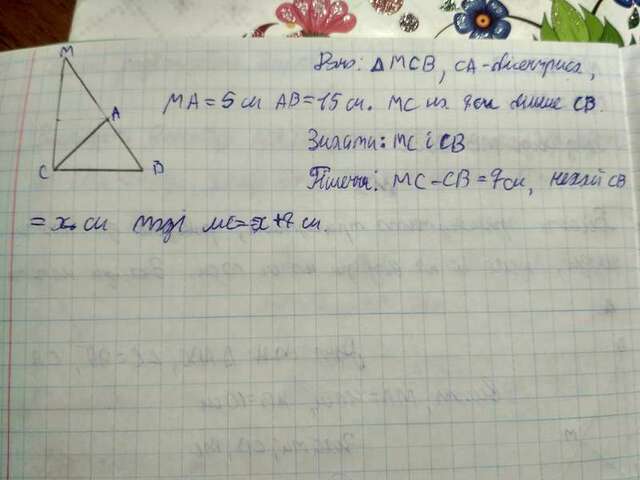 M
A
C
B
Дано: △MCB, CA-бісектриса,
MA=5см AB=15см. MC на 7см більше CB.
Знайти: MC і CB
Рішення: MC-CB=7см, нехай CB
=x см тоді MC=x+7 см.